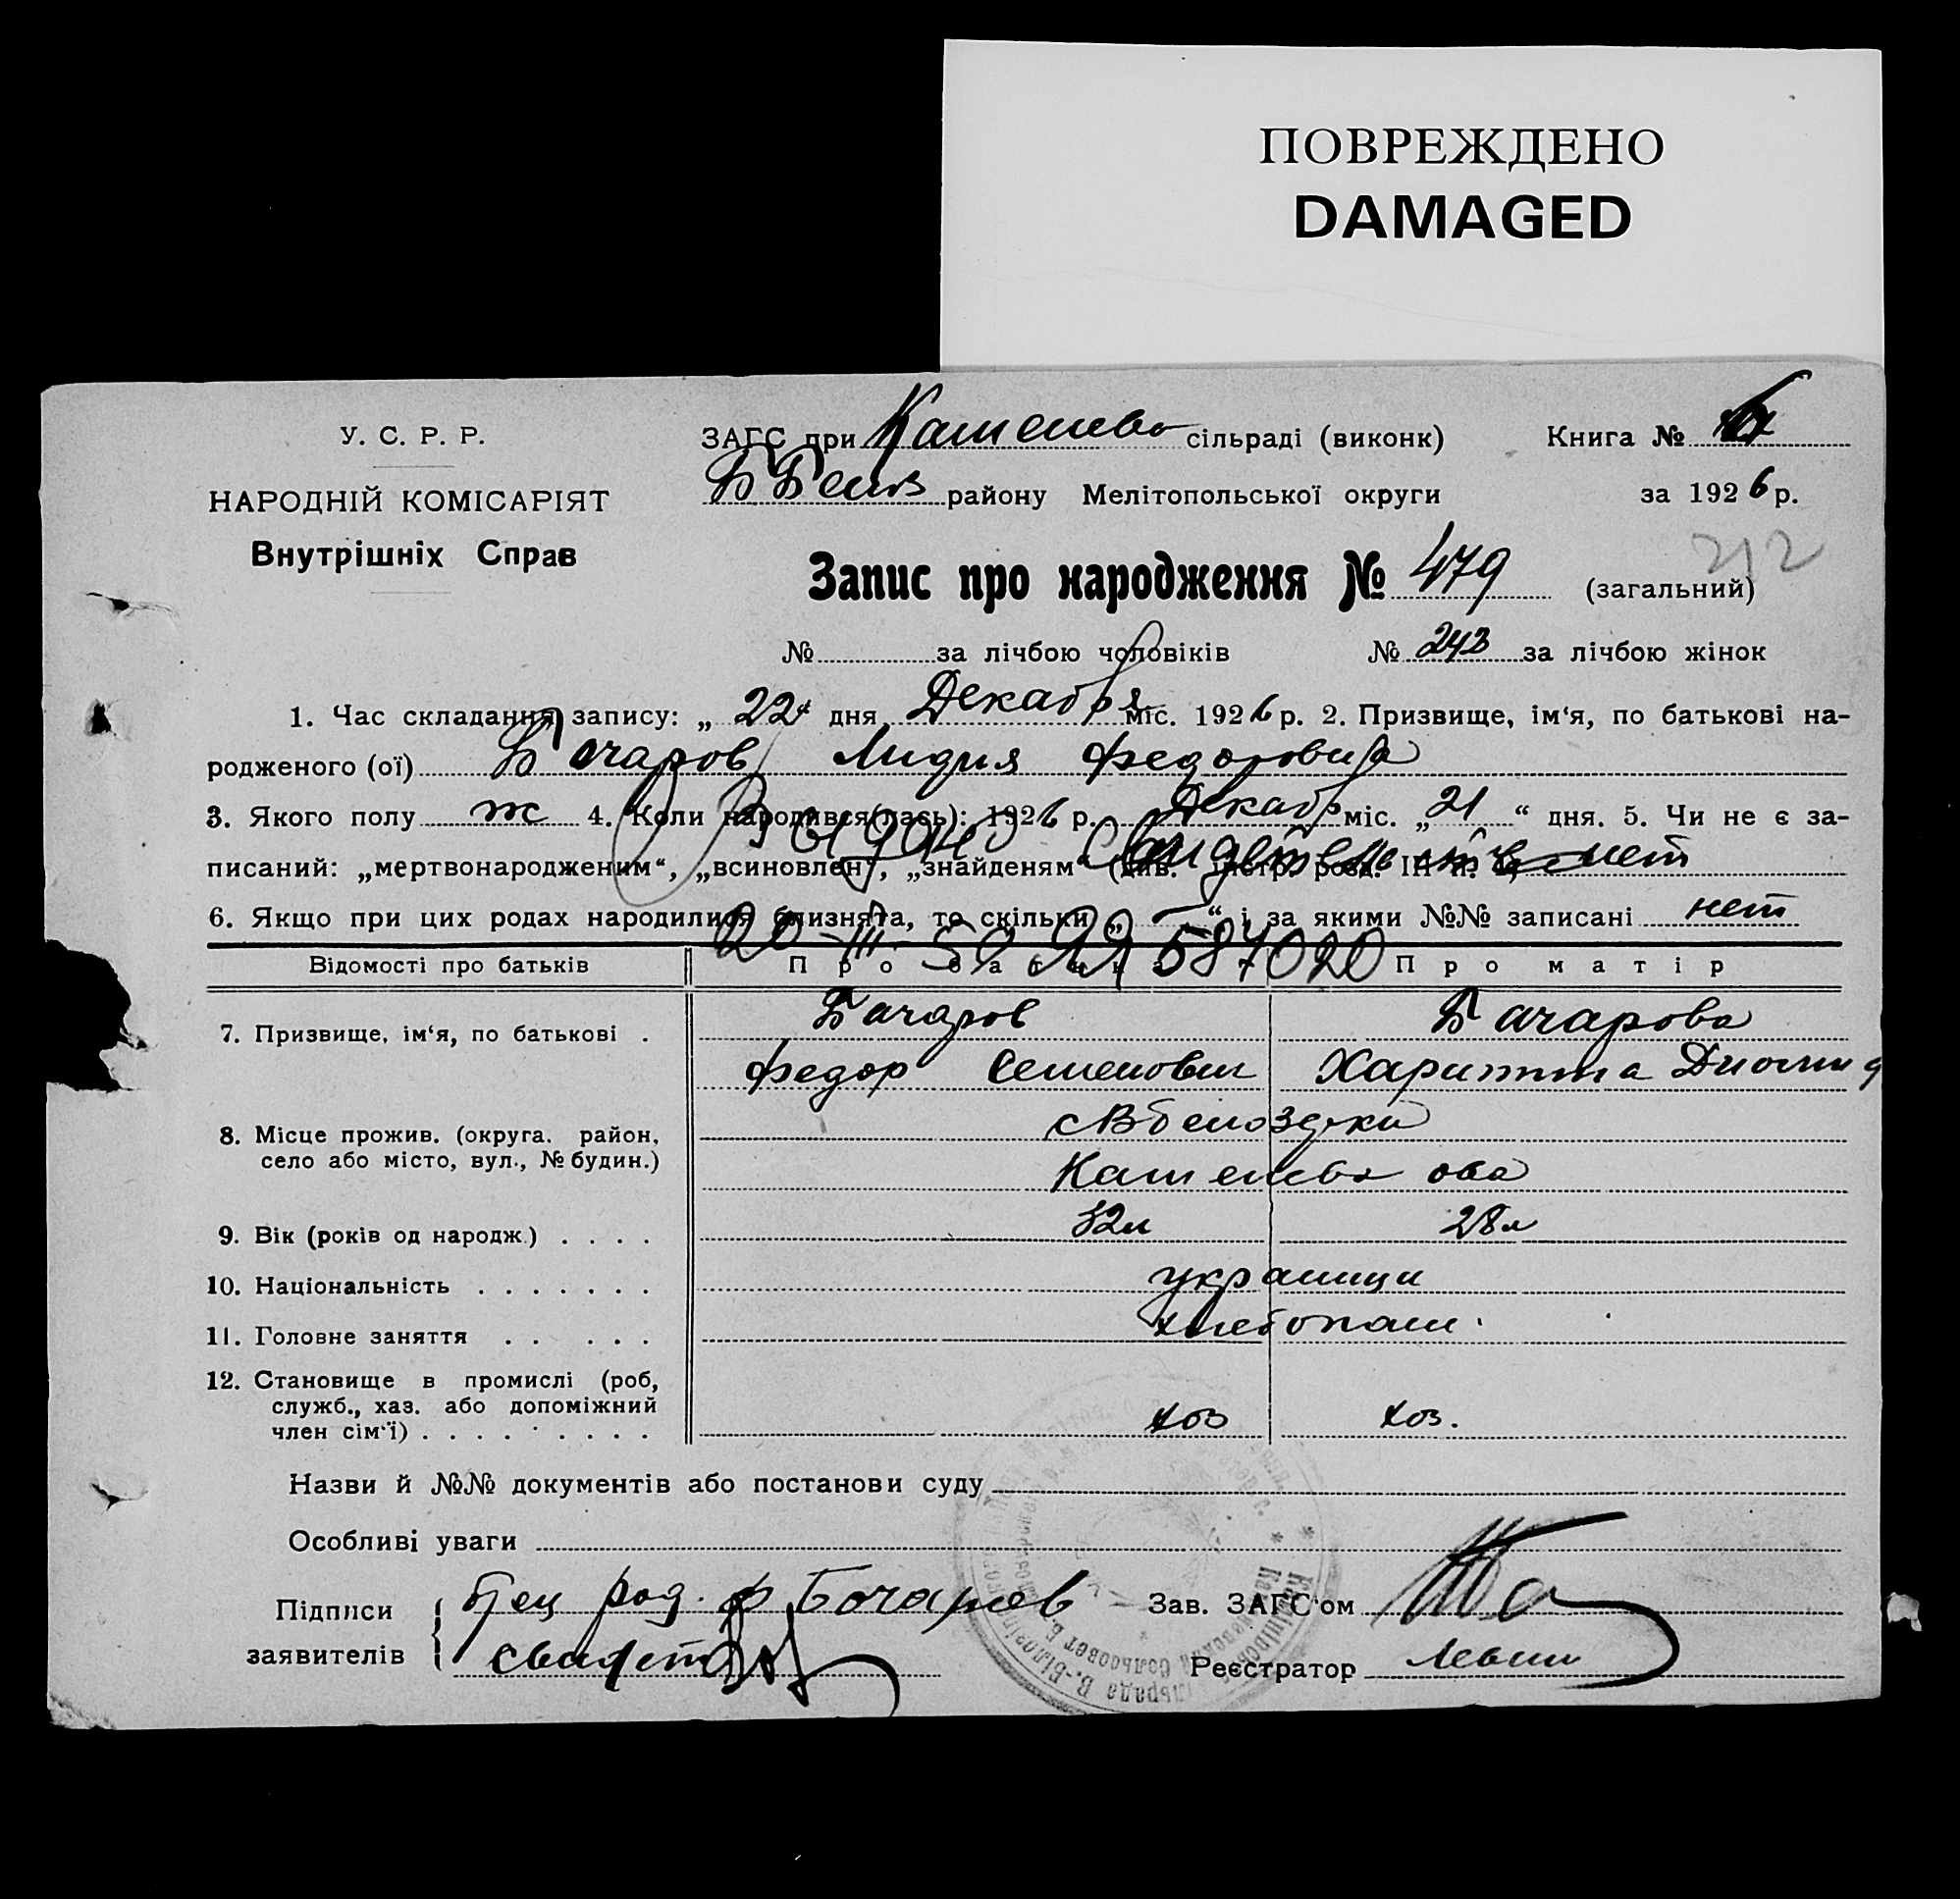 ПОВРЕЖДЕНО
DAMAGED
У. С. Р. Р.
НАРОДНІЙ КОМІСАРІЯТ
Внутрішніх Справ
ЗАГС при сільраді (виконк) Книга №
району Мелітопольської округи за 1926 р.
212
Запис про народження № 479 (загальний)
№ за лічбою чоловіків № 243 за лічбою жінок
1. Час складання запису: „ 22 дня Декабря міс. 1926 р. 2. Призвище, ім‘я, по батькові на-
родженого (ої) Бачаров Лидия Федоровна
3. Якого полу ж 4. Коли народився(лась): 1926 р. Декабр міс. „ 21 “ дня. 5. Чи не є за-
писаний: „мертвонародженим“, „всиновлен“, „знайденям“ (див. інстр. розд. нет
Выдано
6. Якщо при цих родах народилися близнята, то скільки „ — “ і за якими №№ записані нет
20-III-59 587020
Відомості про батьків Про батька Про матір
7. Призвище, ім‘я, по батькові . Бачаров Бачарова
Федор Семенович Харитта Диомид
8. Місце прожив. (округа, район,
село або місто, вул., № будин.)
9. Вік (років од народж.) . . . . 32л 28л
10. Національність . . . . . . . украинци
11. Головне заняття . . . . . хлебопаш.
12. Становище в промислі (роб,
служб., хаз. або допоміжний
член сім‘ї) . . . . . . . . . хоз хоз.
Назви й №№ документів або постанови суду
Особливі уваги
Підписи Отец род. Ф Бочаров Зав. ЗАГС‘ом
заявителів Реєстратор